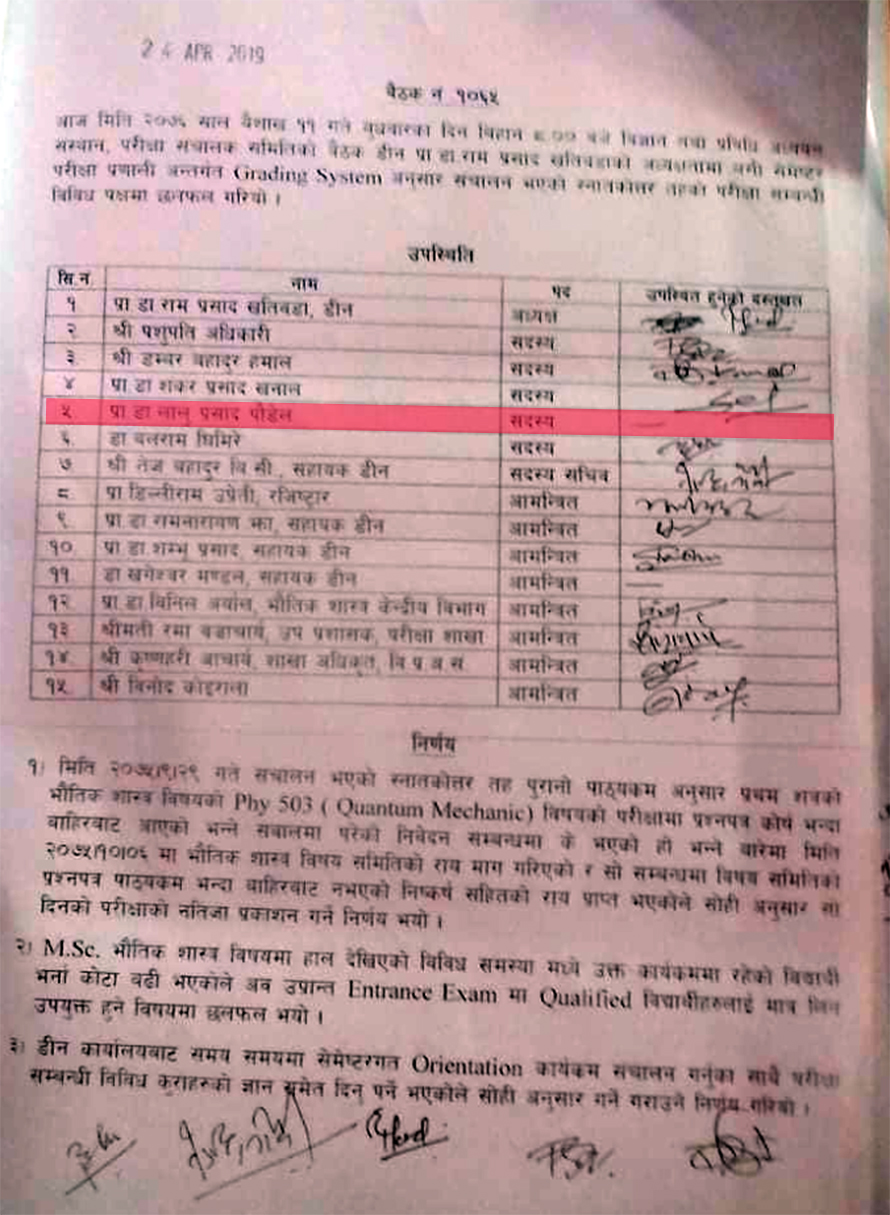 24 APR 2019
बैठक न १०६५
आज मिति २०७६ साल वैशाख ११ गते बुधवारका दिन बिहान ८.०० बजे विज्ञान तथा प्रविधि अध्ययन
संस्थान, परीक्षा संचालक समितिको बैठक डीन प्रा डा राम प्रसाद खतिवडाको अध्यक्षतामा बसी सेमेष्टर
परीक्षा प्रणाली अन्तर्गत Grading System अनुसार संचालन भएको स्नातकोत्तर तहको परीक्षा सम्बन्धी
विविध पक्षमा छलफल गरियो ।
उपस्थिति
सि.न. नाम पद उपस्थित हुनेको दस्तखत
१ प्रा डा राम प्रसाद खतिवडा, डीन अध्यक्ष
२ श्री पशुपति अधिकारी सदस्य
३ श्री डम्बर बहादुर हमाल सदस्य
४ प्रा डा शंकर प्रसाद खनाल सदस्य
५ प्रा डा लालु प्रसाद पौडेल सदस्य —
६ डा बलराम घिमिरे सदस्य
७ श्री तेज बहादुर वि.सी., सहायक डीन सदस्य सचिव
८ प्रा डिल्लीराम उप्रेती, रजिष्ट्रार आमन्त्रित
९ प्रा डा रामनारायण झा, सहायक डीन आमन्त्रित
१० प्रा डा शम्भु प्रसाद, सहायक डीन आमन्त्रित
११ डा खगेश्वर मण्डल, सहायक डीन आमन्त्रित —
१२ प्रा डा विनिल अर्याल, भौतिक शास्त्र केन्द्रीय विभाग आमन्त्रित
१३ श्रीमती रमा बजाचार्य, उप प्रशासक, परीक्षा शाखा आमन्त्रित
१४ श्री कृष्णहरी आचार्य, शाखा अधिकृत, वि प अ सं आमन्त्रित
१५ श्री विनोद कोइराला आमन्त्रित
निर्णय
१) मिति २०७५/९/२९ गते संचालन भएको स्नातकोत्तर तह पुरानो पाठ्यक्रम अनुसार प्रथम सत्रको
भौतिक शास्त्र विषयको Phy 503 ( Quantum Mechanic) विषयको परीक्षामा प्रश्नपत्र कोर्ष भन्दा
बाहिरबाट आएको भन्ने सवालमा परेको निवेदन सम्बन्धमा के भएको हो भन्ने बारेमा मिति
२०७५/१०/०६ मा भौतिक शास्त्र विषय समितिको राय माग गरिएको र सो सम्बन्धमा विषय समितिको
प्रश्नपत्र पाठ्यक्रम भन्दा बाहिरबाट नभएको निष्कर्ष सहितको राय प्राप्त भएकोले सोही अनुसार सो
दिनको परीक्षाको नतिजा प्रकाशन गर्ने निर्णय भयो ।
२) M.Sc. भौतिक शास्त्र विषयमा हाल देखिएको विविध समस्या मध्ये उक्त कार्यक्रममा रहेको विद्यार्थी
भर्ना कोटा बढी भएकोले अब उप्रान्त Entrance Exam मा Qualified विद्यार्थीहरुलाई मात्र लिन
उपयुक्त हुने विषयमा छलफल भयो ।
३) डीन कार्यालयबाट समय समयमा सेमेष्टरगत Orientation कार्यक्रम संचालन गर्नुका साथै परीक्षा
सम्बन्धी विविध कुराहरुको ज्ञान समेत दिनु पर्ने भएकोले सोही अनुसार गर्ने गराउने निर्णय गरियो ।